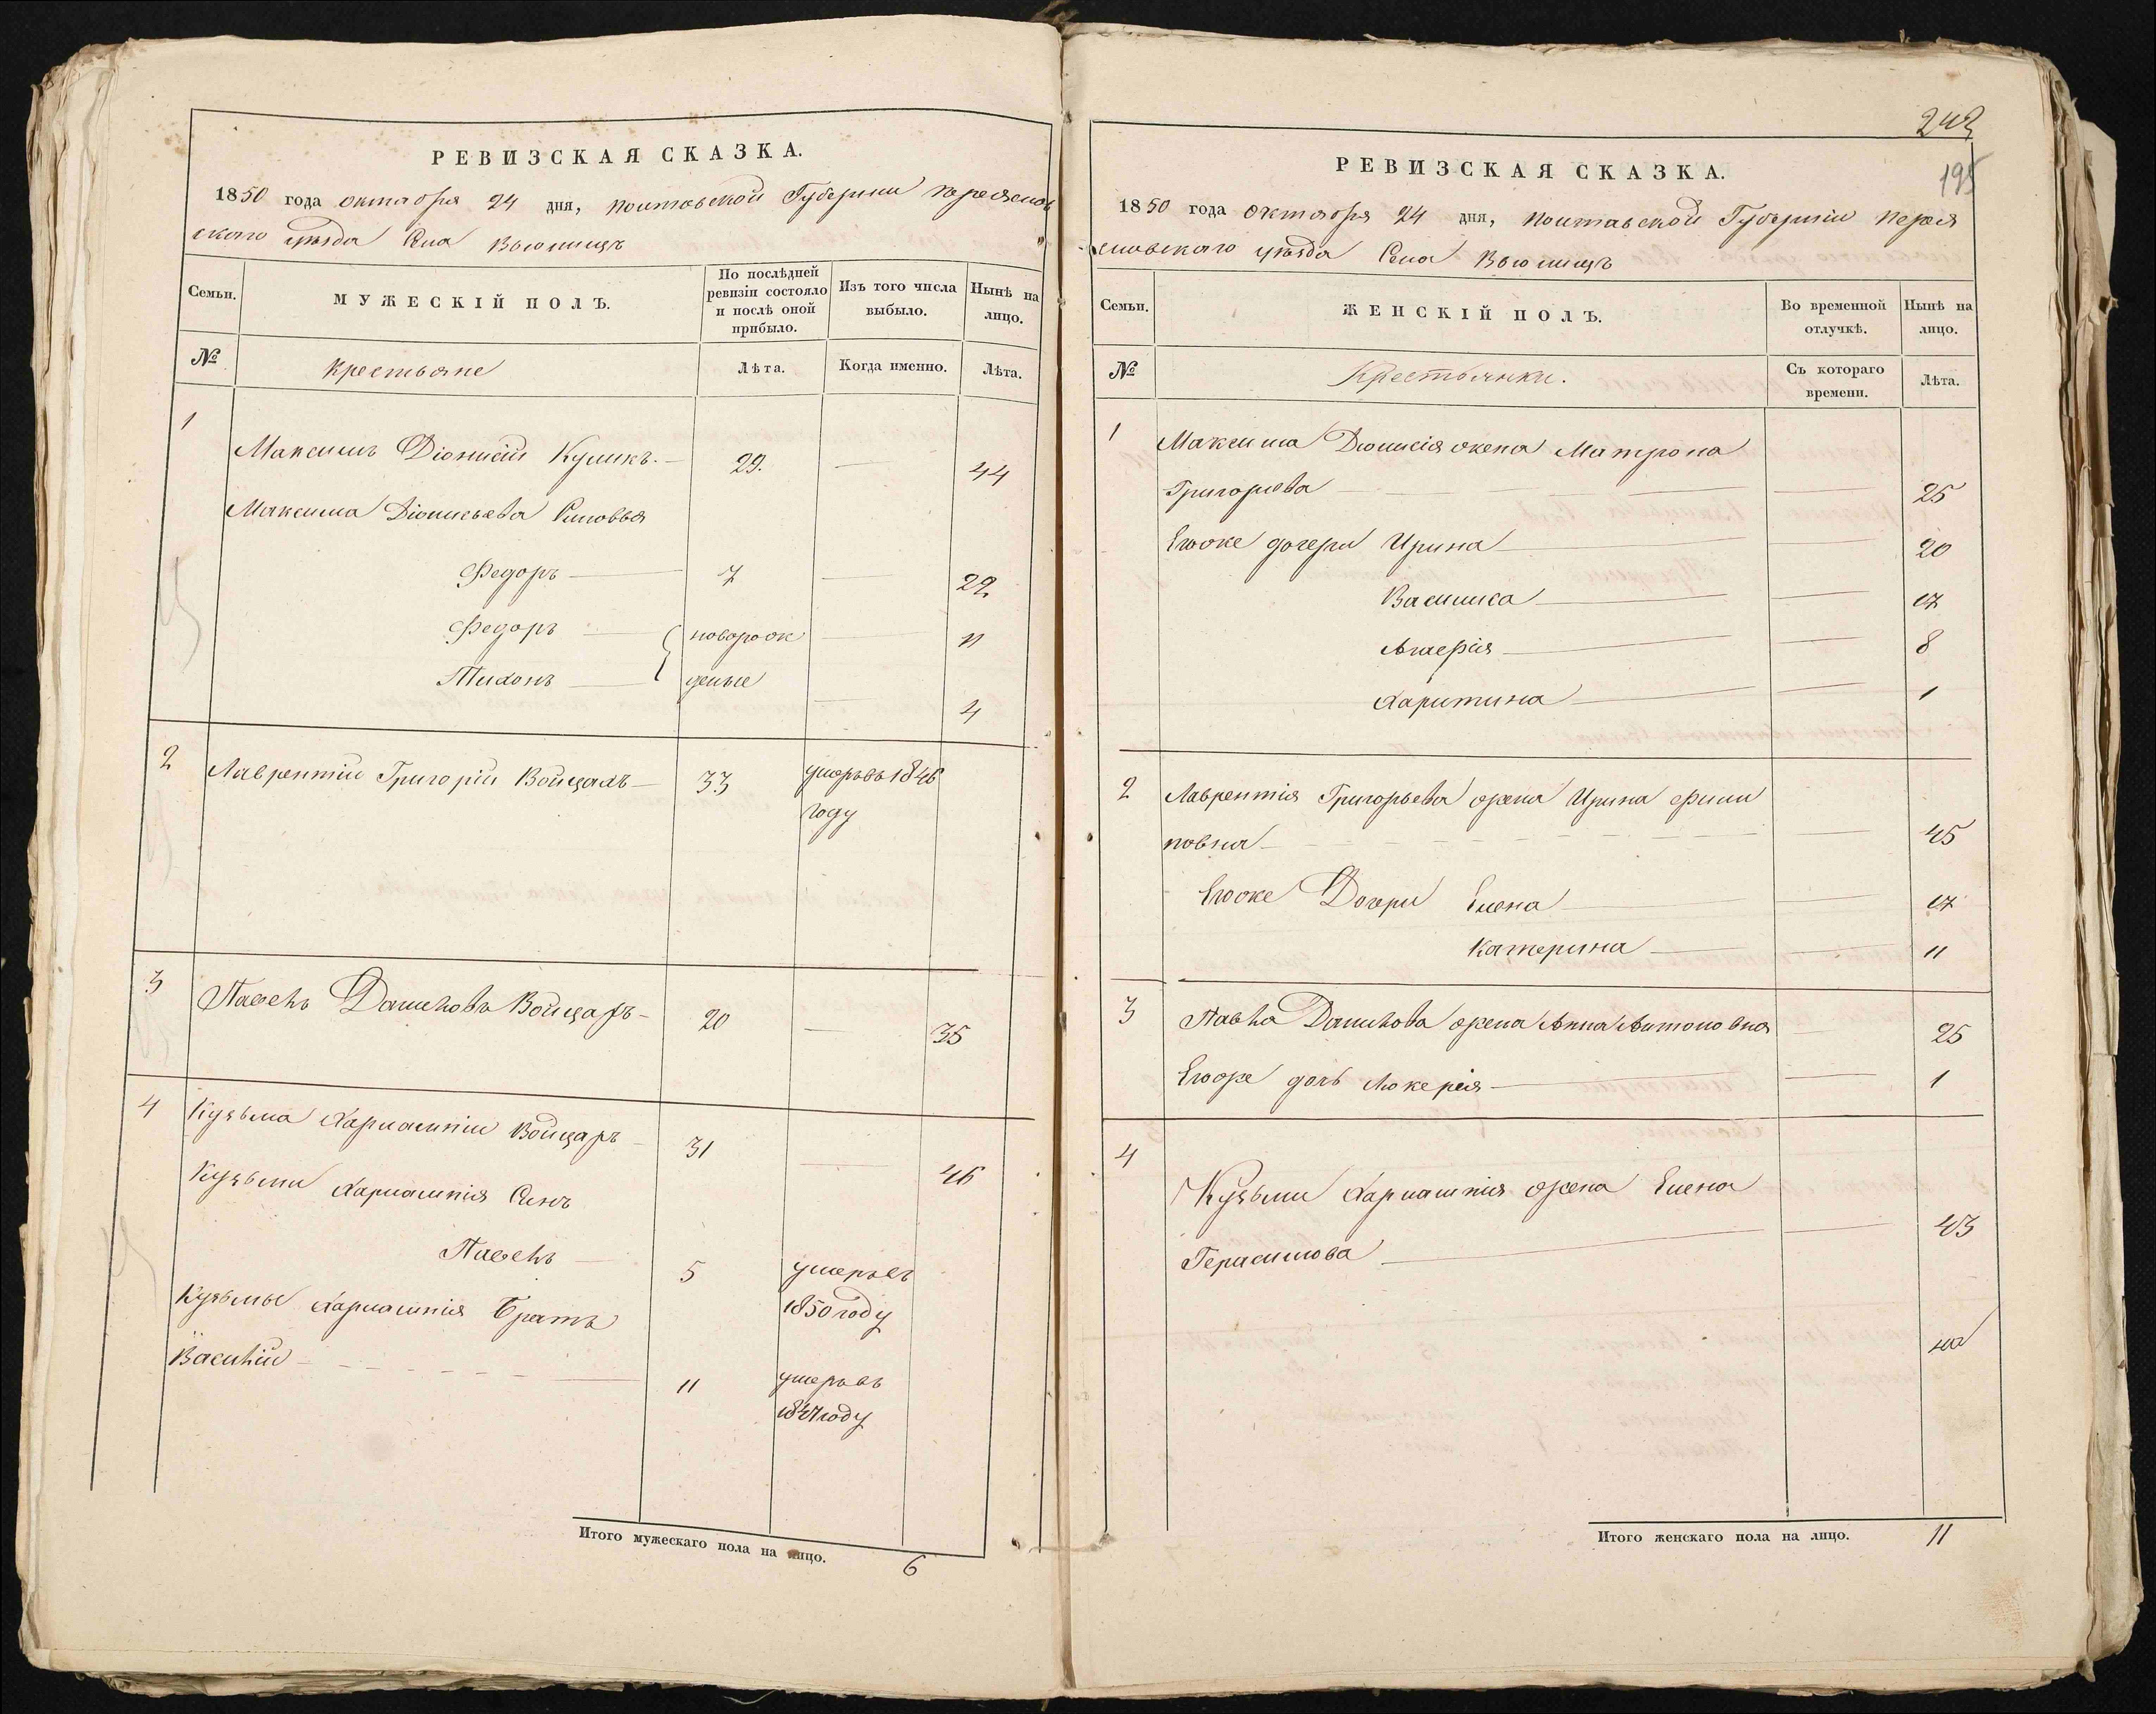 РЕВИЗСКАЯ СКАЗКА.
1850 года октября 24 дня, Полтавской Губернии Переяслов
ского уѣзда Села Вьюнищъ
Семьи.
МУЖЕСКІЙ ПОЛЪ.
По послѣдней ревизіи состояло и послѣ оной прибыло.
Изъ того числа выбыло.
Нынѣ на лицо.
№
Крестьяне
Лѣта.
Когда именно.
Лѣта.
1
Максимъ Діонисій Куликъ. 29. 44
Максима Діонисьева Синовья
Федоръ 7 22
Федоръ новорож 11
Тихонъ деные 4
2 Лаврентій Григорій Войцахъ 33 умеръ въ 1846
году
3 Павелъ Даниловъ Войцаръ 20 35
4 Кузьма Харлампій Войцаръ 31 46
Кузьми Харлампія Синъ
Павелъ 5 умеръ въ
1850 году
Кузьмы Харлампія Братъ
Василій 11 умеръ въ
1847 году
Итого мужескаго пола на лицо. 6
242
195
РЕВИЗСКАЯ СКАЗКА.
1850 года октября 24 дня, Полтавской Губерніи Перея
словскаго уѣзда Села Вьюнищъ
Семьи.
ЖЕНСКІЙ ПОЛЪ.
Во временной отлучкѣ.
Нынѣ на лицо.
№
Крестьянки.
Съ котораго времени.
Лѣта.
1 Максима Дионисія жена Матрона
Григорьева 25
Егоже дочери Ирина 20
Василиса 17
Гликерія 8
Харитина 1
2 Лаврентія Григорьева жена Ирина Фили
повна 45
Егоже Дочери Елена 17
Катерина 11
3 Павла Данилова жена Анна Антоновна 25
Егоже дочь Люкерія 1
4
Кузьми Харлампия жена Елена 43
Герасимова
Итого женскаго пола на лицо. 11